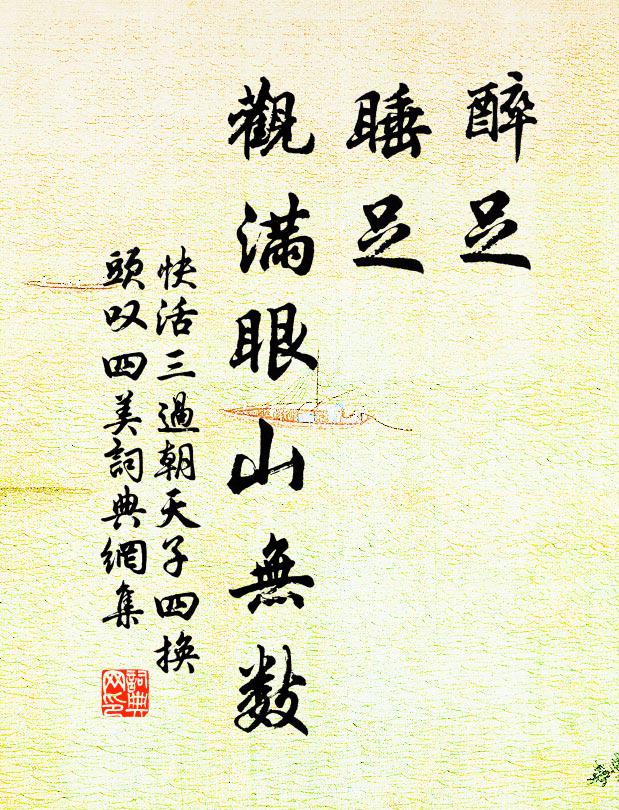 醉足
睡足
觀滿眼山無數
快活三過朝天子四換
頭叹四美詞典網集
詞典
网印